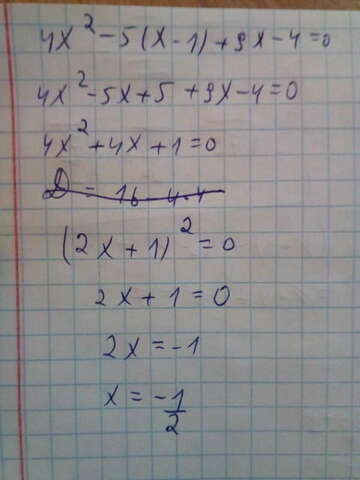 4x² - 5(x - 1) + 9x - 4 = 0
4x² - 5x + 5 + 9x - 4 = 0
4x² + 4x + 1 = 0
D = 16 - 4·4
(2x + 1)² = 0
2x + 1 = 0
2x = -1
x = -1/2